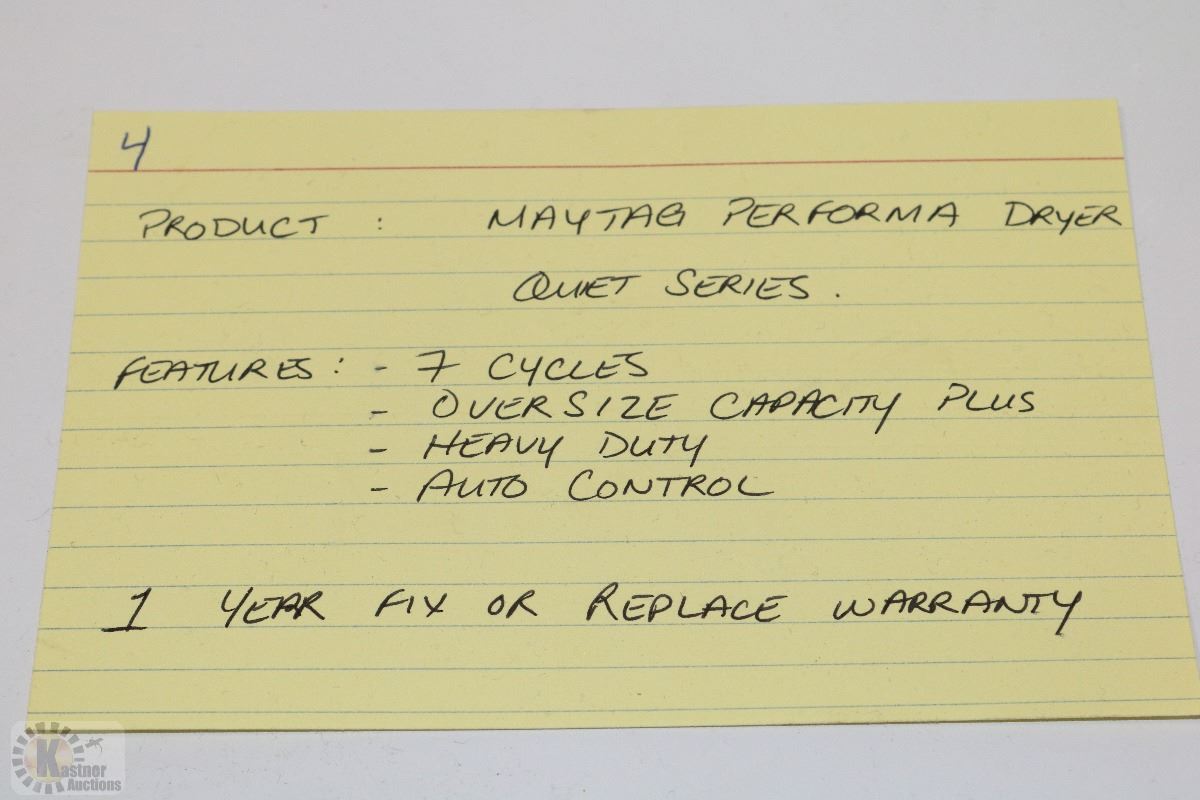 4
PRODUCT : MAYTAG PERFORMA DRYER
QUIET SERIES.
FEATURES: - 7 CYCLES
- OVERSIZE CAPACITY PLUS
- HEAVY DUTY
- AUTO CONTROL
1 YEAR FIX OR REPLACE WARRANTY
Kastner
Auctions